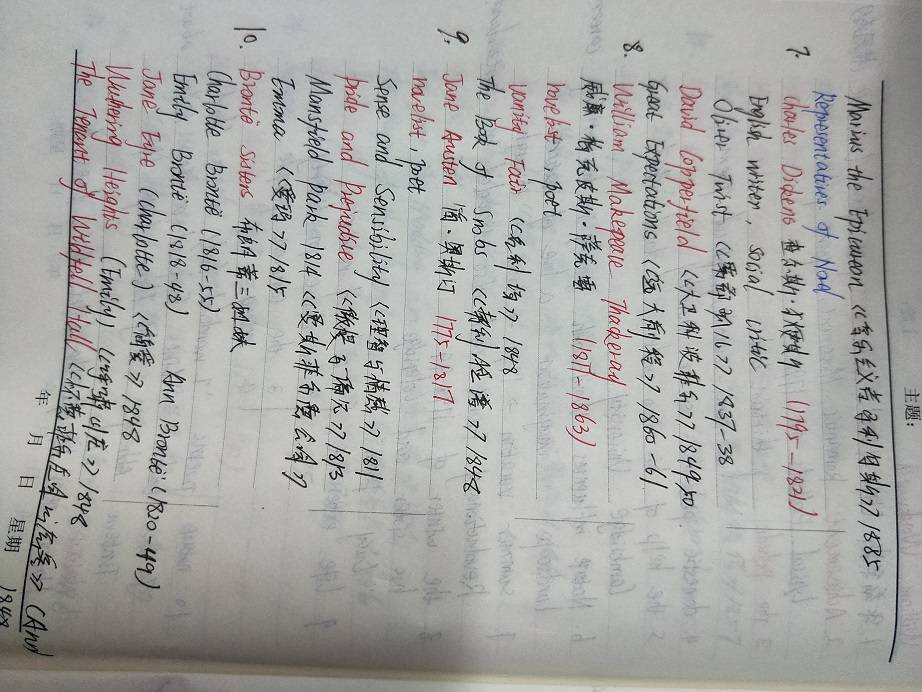 主题:
Marius the Epicurean 《享乐主义者马利乌斯》1885
Representatives of Novel
7. Charles Dickens 查尔斯·狄更斯 (1795-1821)
English writer, social critic
Oliver Twist 《雾都孤儿》1837-38
David Copperfield 《大卫科波菲尔》1849-50
Great Expectations 《远大前程》1860-61
8. William Makepeace Thackeray (1811-1863)
威廉·梅克皮斯·萨克雷
novelist, poet
Vanity Fair 《名利场》1848
The Book of Snobs 《势利的脸谱》1848
9. Jane Austen 简·奥斯汀 1775-1817
novelist, poet
Sense and Sensibility 《理智与情感》1811
Pride and Prejudice 《傲慢与偏见》1813
Mansfield park 1814 《曼斯菲尔德公园》
Emma 《爱玛》1815
10. Brontë Sisters 勃朗蒂三姐妹
Charlotte Brontë (1816-55)
Emily Brontë (1818-48) Ann Brontë (1820-49)
Jane Eyre (Charlotte) 《简爱》1848
Wuthering Heights (Emily) 《呼啸山庄》1848
The Tenant of Wildfell Hall 《怀尔德菲尔庄园的房客》(Ann) 1848
年 月 日 星期